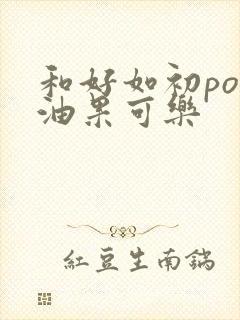 和好如初po
油果可樂
紅豆生南鍋